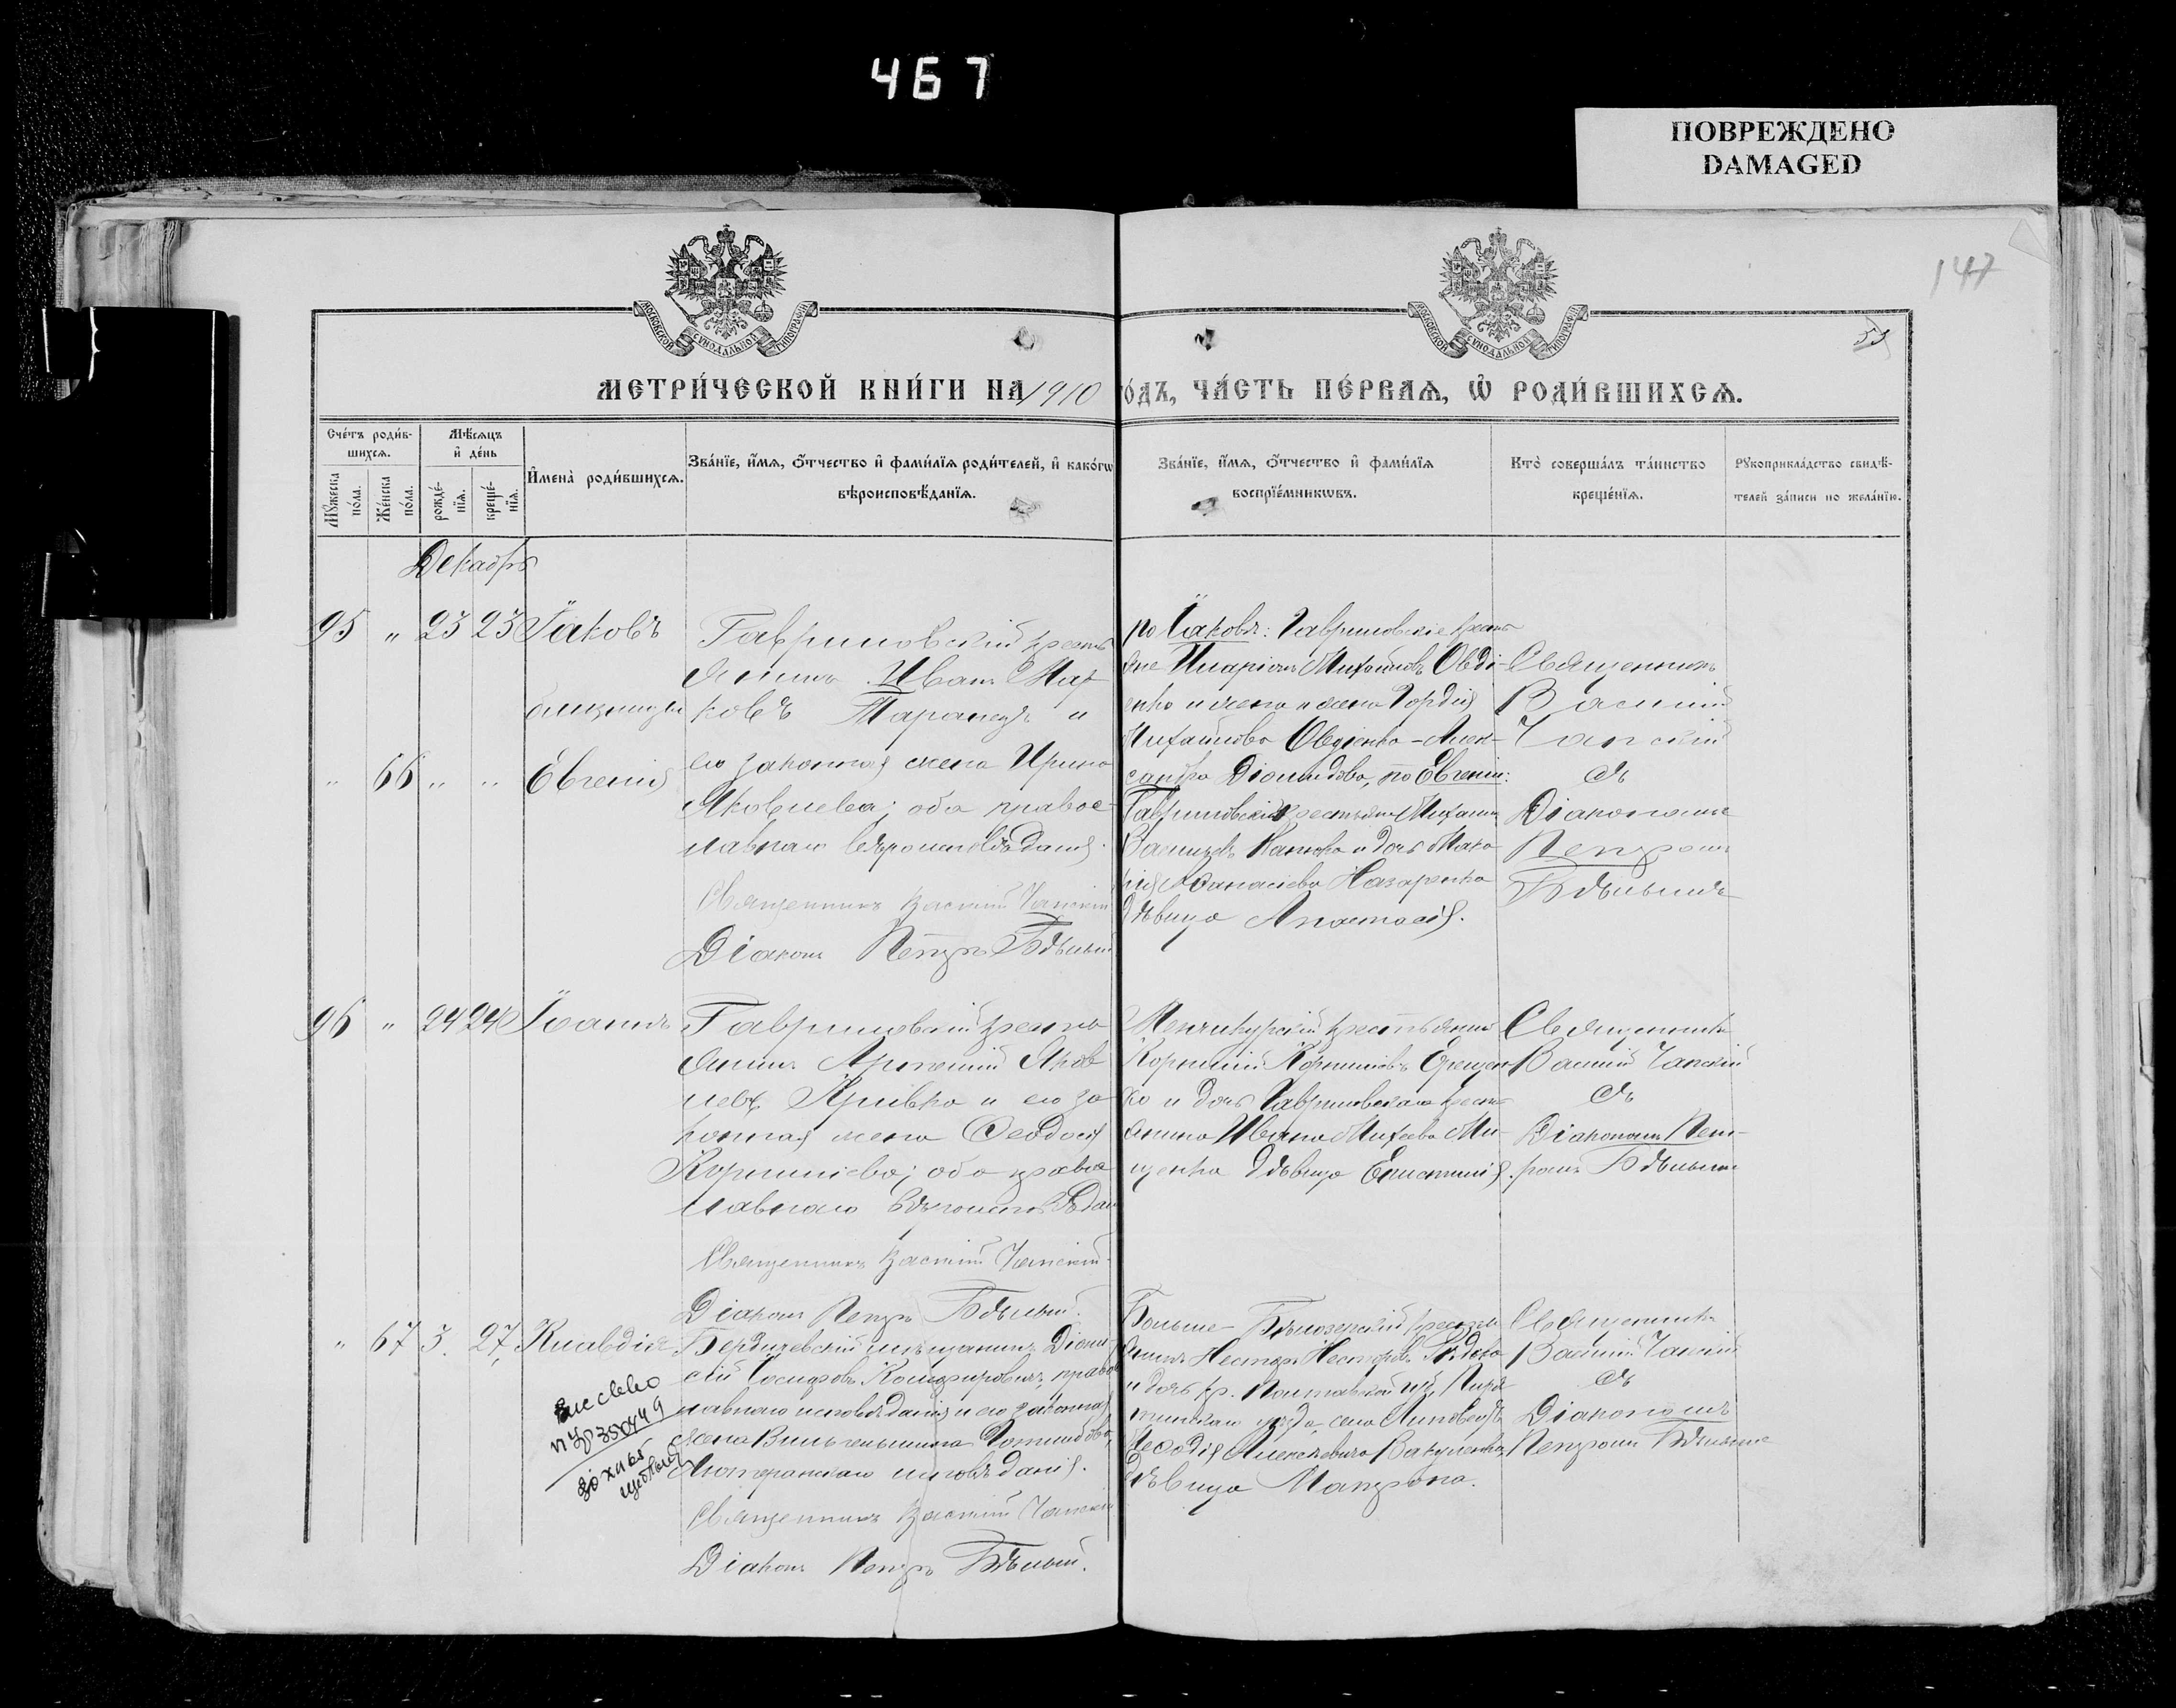 467
ПОВРЕЖДЕНО
DAMAGED
147
МОСКОВСКОЙ СѴНОДАЛЬНОЙ ТИПОГРАФІИ
МОСКОВСКОЙ СѴНОДАЛЬНОЙ ТИПОГРАФІИ
МЕТРИ́ЧЕСКОЙ КНИ́ГИ НА 1910 ГО́ДЪ, ЧА́СТЬ ПЕ́РВАѦ, Ѽ РОДИ́ВШИХСѦ.
Сче́тъ роди́в-
шихсѧ.
Мꙋ́жеска по́ла.
Же́нска по́ла.
Мѣ́сѧцъ
и҆ де́нь
рожде́-
нїѧ.
креще́-
нїѧ.
И҆мена̀ роди́вшихсѧ.
Зва́нїе, и҆́мѧ, ѻ҆́тчество и҆ фами́лїѧ роди́телей, и҆ како́гѡ
вѣроисповѣ́данїѧ.
Зва́нїе, и҆́мѧ, ѻ҆́тчество и҆ фами́лїѧ
воспрїе́мникѡвъ.
Кто̀ соверша́лъ та́инство
креще́нїѧ.
Рꙋкоприкла́дство свидѣ́-
телей за́писи по жела́нїю.
Декабрь
95 " 23 23 Іаковъ
близнецы
" 66 " " Евгенія
Гавриловскій кресть
янинъ Иванъ Мар
ковъ Таранецъ и
его законная жена Ирина
Яковлева; оба правос-
лавнаго вѣроисповѣданія.
Священникъ Василій Чапскій
Діаконъ Петръ Бѣлый
по Іаковѣ: Гавриловскіе кресть
яне Иларіонъ Михайловъ Овді-
енко и жена Гордія
Михайлова Овдіенко - Алек-
сандра Діомидова, по Евгеніи:
Гавриловскій крестьянинъ Михаилъ
и дочь Мака
рія Аѳанасіева Назаренко
дѣвица Анастасія.
Священникъ
Василій
Чапскій
съ
Діакономъ
Петромъ
Бѣлымъ
96 " 24 24 Іоаннъ
Гавриловскій кресть
янинъ Арсеній Яков
левъ Кривко и его за
конная жена Ѳеодосія
Корниліева; оба правос
лавнаго вѣроисповѣдан
Священникъ Василій Чапскій
Діаконъ Петръ Бѣлый.
Менчикурскій крестьянинъ
Корнилій Корниліевъ Ерещен
ко и дочь Гавриловскаго кресть
янина Ивана Михеева Ми-
щенко дѣвица Епистимія.
Священникъ
Василій Чапскій
съ
Діакономъ Пет-
ромъ Бѣлымъ
" 67 3. 27, Клавдія
Бердичевскій мѣщанинъ Діони-
сій Іосифовъ правос
лавнаго исповѣданія и его законная
жена Вильгельмина
Лютеранскаго исповѣданія.
Священникъ Василій Чапскій
Діаконъ Петръ Бѣлый.
Больше-Бѣлозерскій крестья
янинъ Несторъ Несторовъ
и дочь кр. Полтавской губ, Пиря
тинскаго уѣзда, села
Алексѣевича Вакуленко,
дѣвица Матрона.
Священникъ
Василій Чапскій
съ
Діакономъ
Петромъ Бѣлымъ